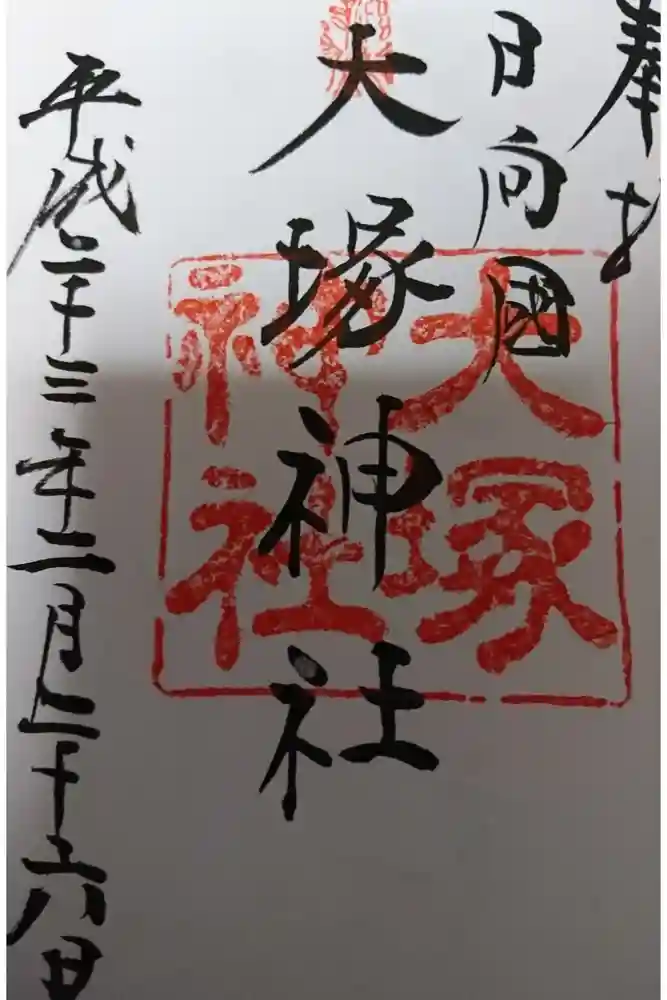 奉拝
日向國
大塚神社
大塚
神社
平成二十三年二月二十六日